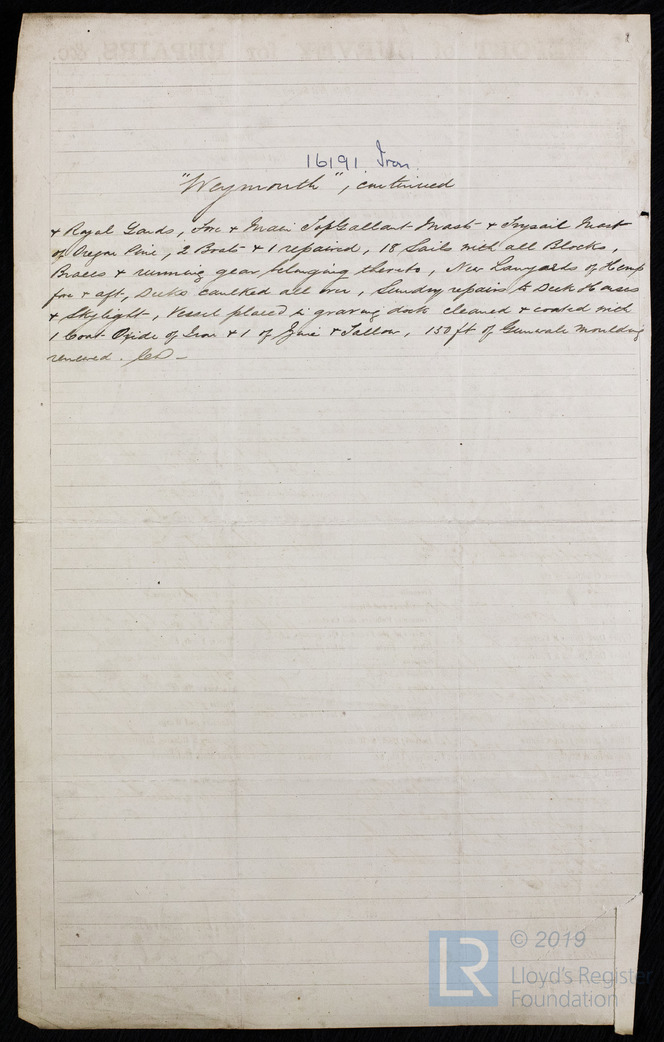 16191 Iron
"Weymouth", continued
& Royal Yards, Fore & Main TopGallant Mast & Trysail Mast
of Oregon Pine, 2 Boats & 1 repaired, 18 Sails with all Blocks,
Braces & running gear belonging thereto, New Lanyards of Hemp
fore & aft, Decks caulked all over, Sundry repairs to Deck Houses
& Skylight, Vessel placed in graving dock cleaned & coated with
1 Coat Oxide of Iron & 1 of Zinc & Tallow, 150 ft of Gunwale moulding
renewed.
LR
© 2019
Lloyd's Register
Foundation